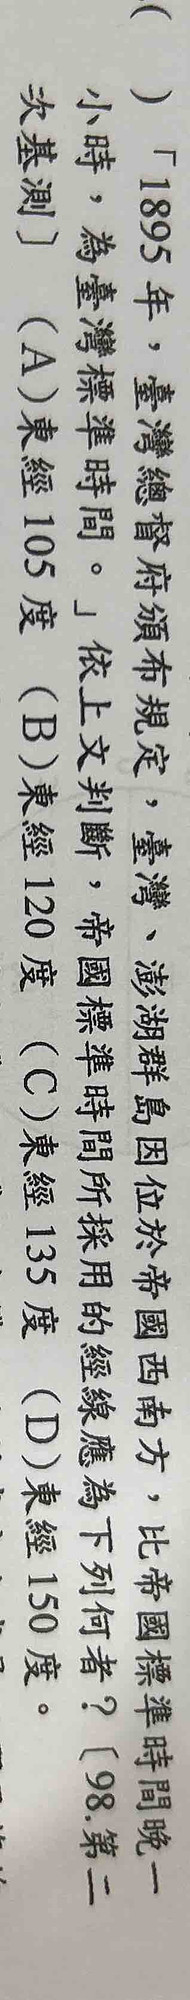 (　　) 「1895 年，臺灣總督府頒布規定，臺灣、澎湖群島因位於帝國西南方，比帝國標準時間晚一
小時，為臺灣標準時間。」依上文判斷，帝國標準時間所採用的經線應為下列何者？〔98.第二
次基測〕　(A)東經 105 度　(B)東經 120 度　(C)東經 135 度　(D)東經 150 度。